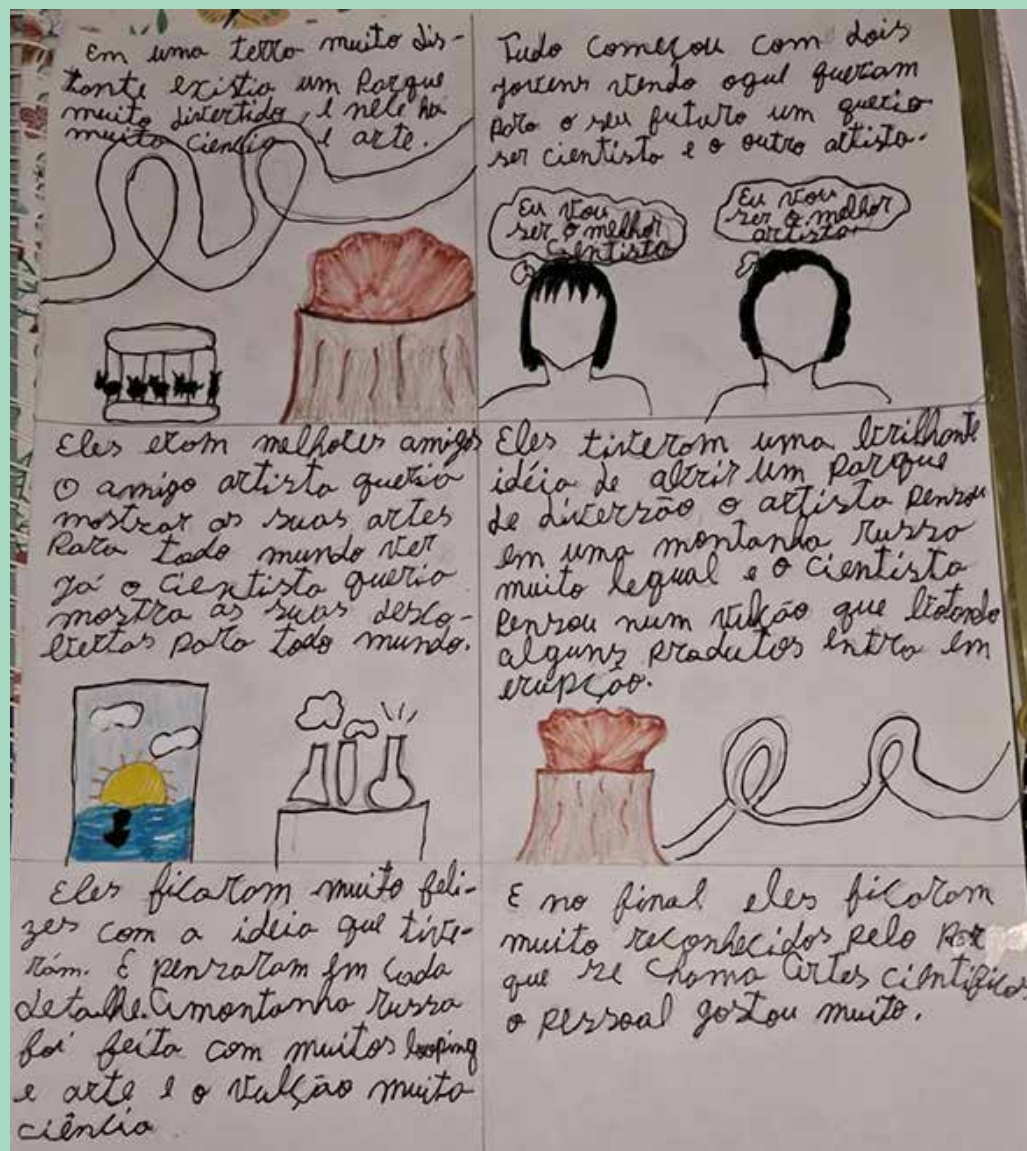 Em uma terra muito dis-
tante existia um Parque
muito divertido, e nele há
muito ciencia e arte.
Tudo começou com dois
jovens vendo oque queram
para o seu futuro um queria
ser cientista e o outro artista.
Eu vou
ser o melhor
cientista
Eu vou
ser o melhor
artista
Eles eram melhores amigos
O amigo artista queria
mostrar as suas artes
Para todo mundo ver
já o cientista queria
mostra as suas desco-
bertas para todo mundo.
Eles tiverom uma brilhante
idéia de abrir um parque
de diversão o artista pensou
em uma montanha russa
muito legual e o cientista
pensou num vulção que botando
alguns produtos entra em
erupção.
Eles ficaram muito feli-
zes com a idéia que tive-
ram. E pensaram em cada
detalhe. A montanha russa
foi feita com muitos looping
e arte e o vulção muita
ciência
E no final eles ficaram
muito reconhecidos pelo
que se chama Artes científicas
o pessoal gostou muito.